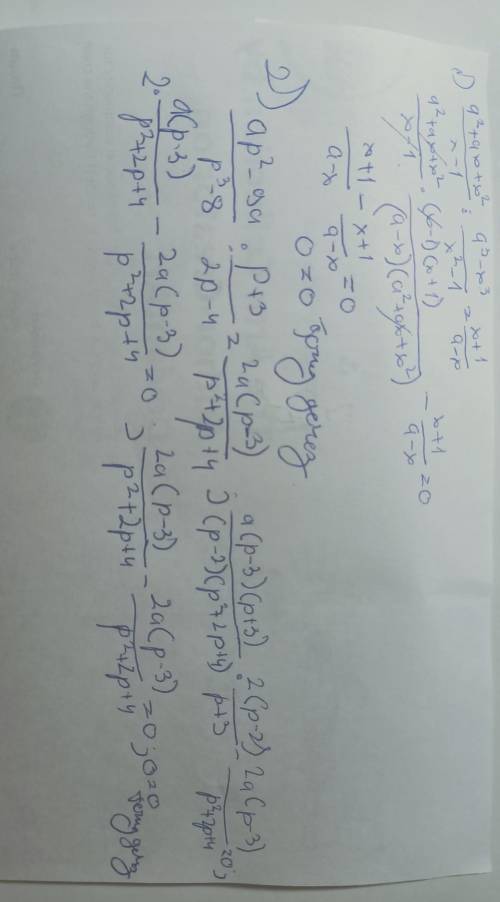 1) (a²+ax+x²)/(x-1) : (a³-x³)/(x²-1) = (x+1)/(a-x)
(a²+ax+x²)/(x-1) · ((x-1)(x+1))/((a-x)(a²+ax+x²)) - (x+1)/(a-x) = 0
(x+1)/(a-x) - (x+1)/(a-x) = 0
0=0
2) (ap²-9a)/(p³-8) : (p+3)/(2p-4) = (2a(p-3))/(p²+2p+4) ; (a(p-3)(p+3))/((p-2)(p²+2p+4)) · (2(p-2))/(p+3) - (2a(p-3))/(p²+2p+4) =0;
2· (a(p-3))/(p²+2p+4) - (2a(p-3))/(p²+2p+4) =0 ; (2a(p-3))/(p²+2p+4) - (2a(p-3))/(p²+2p+4) =0; 0=0